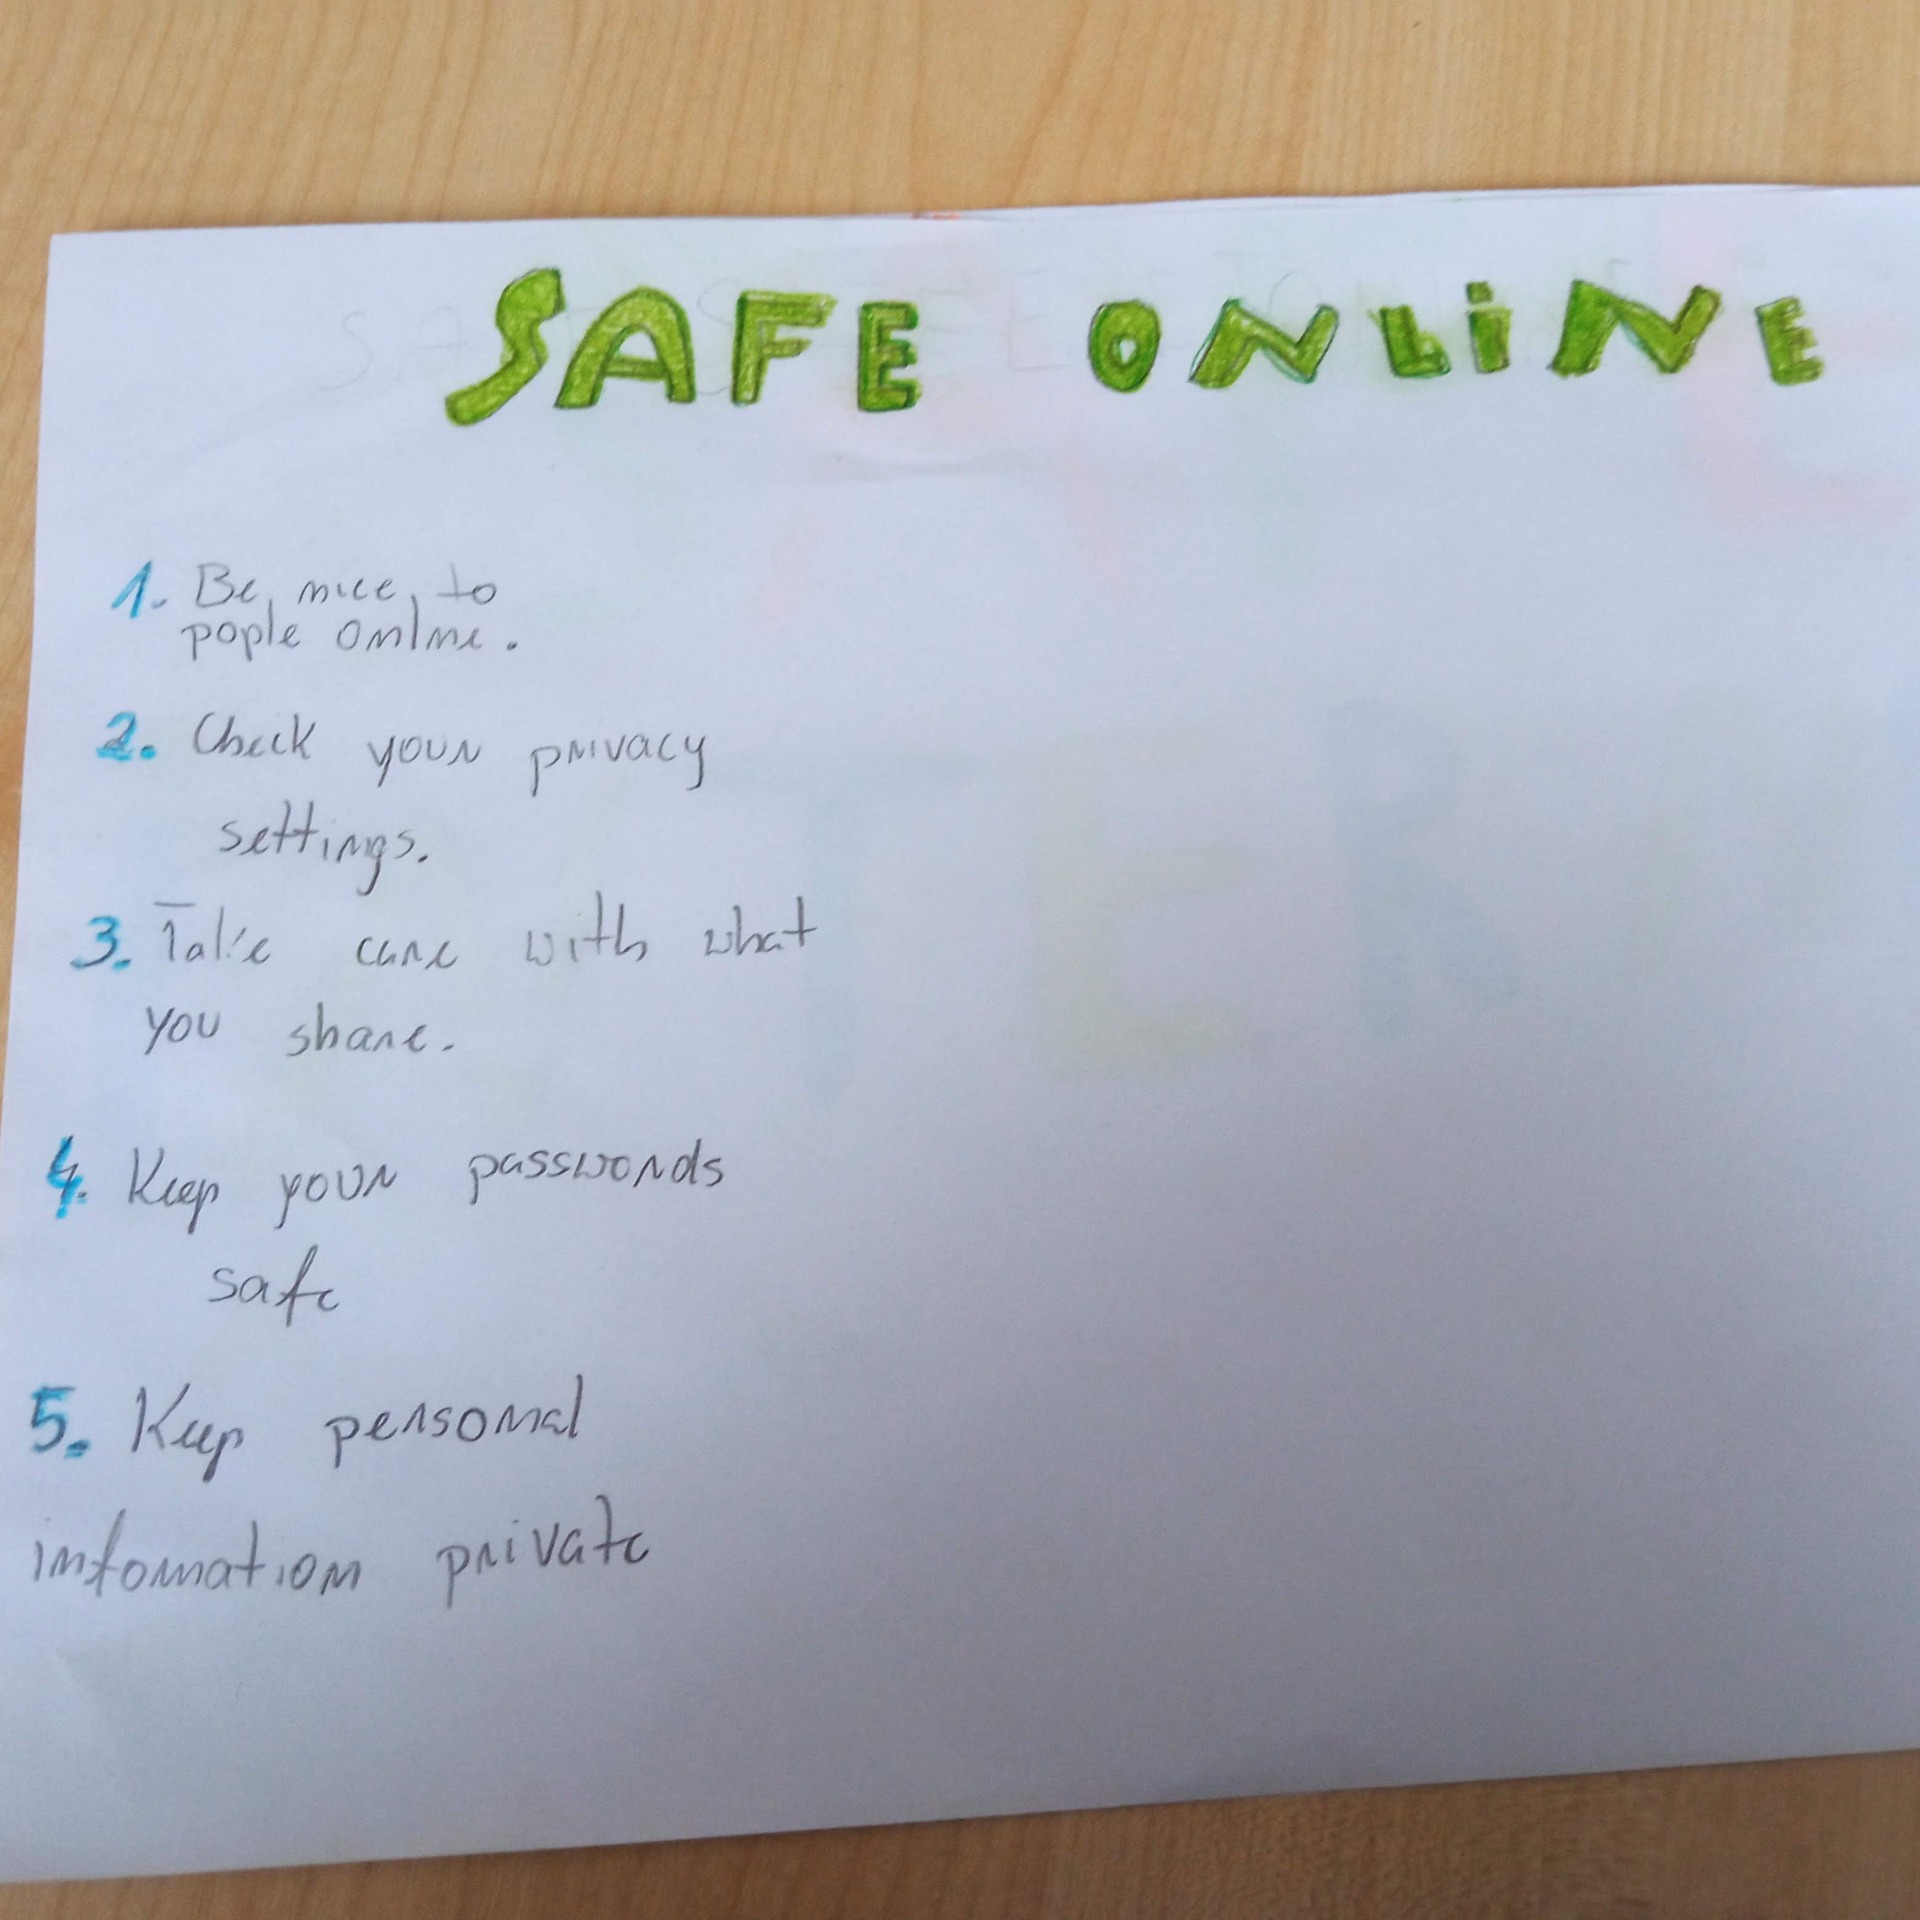 SAFE ONLiNE
1. Be nice to
pople online.
2. Check your privacy
settings.
3. Take care with what
you share.
4. Keep your passwords
safe
5. Keep personal
information private